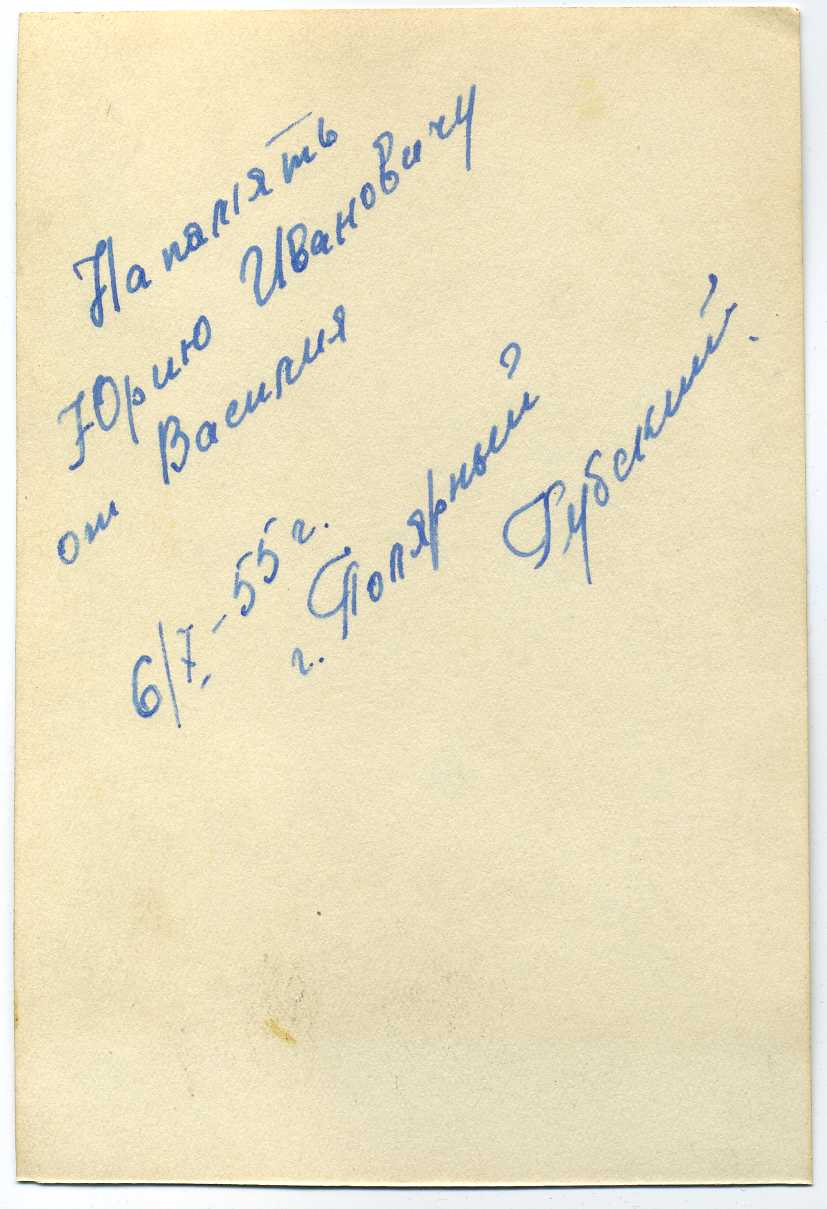 На память
Юрию Ивановичу
от Василия
6/7-55 г.
г. Полярный
Губский.